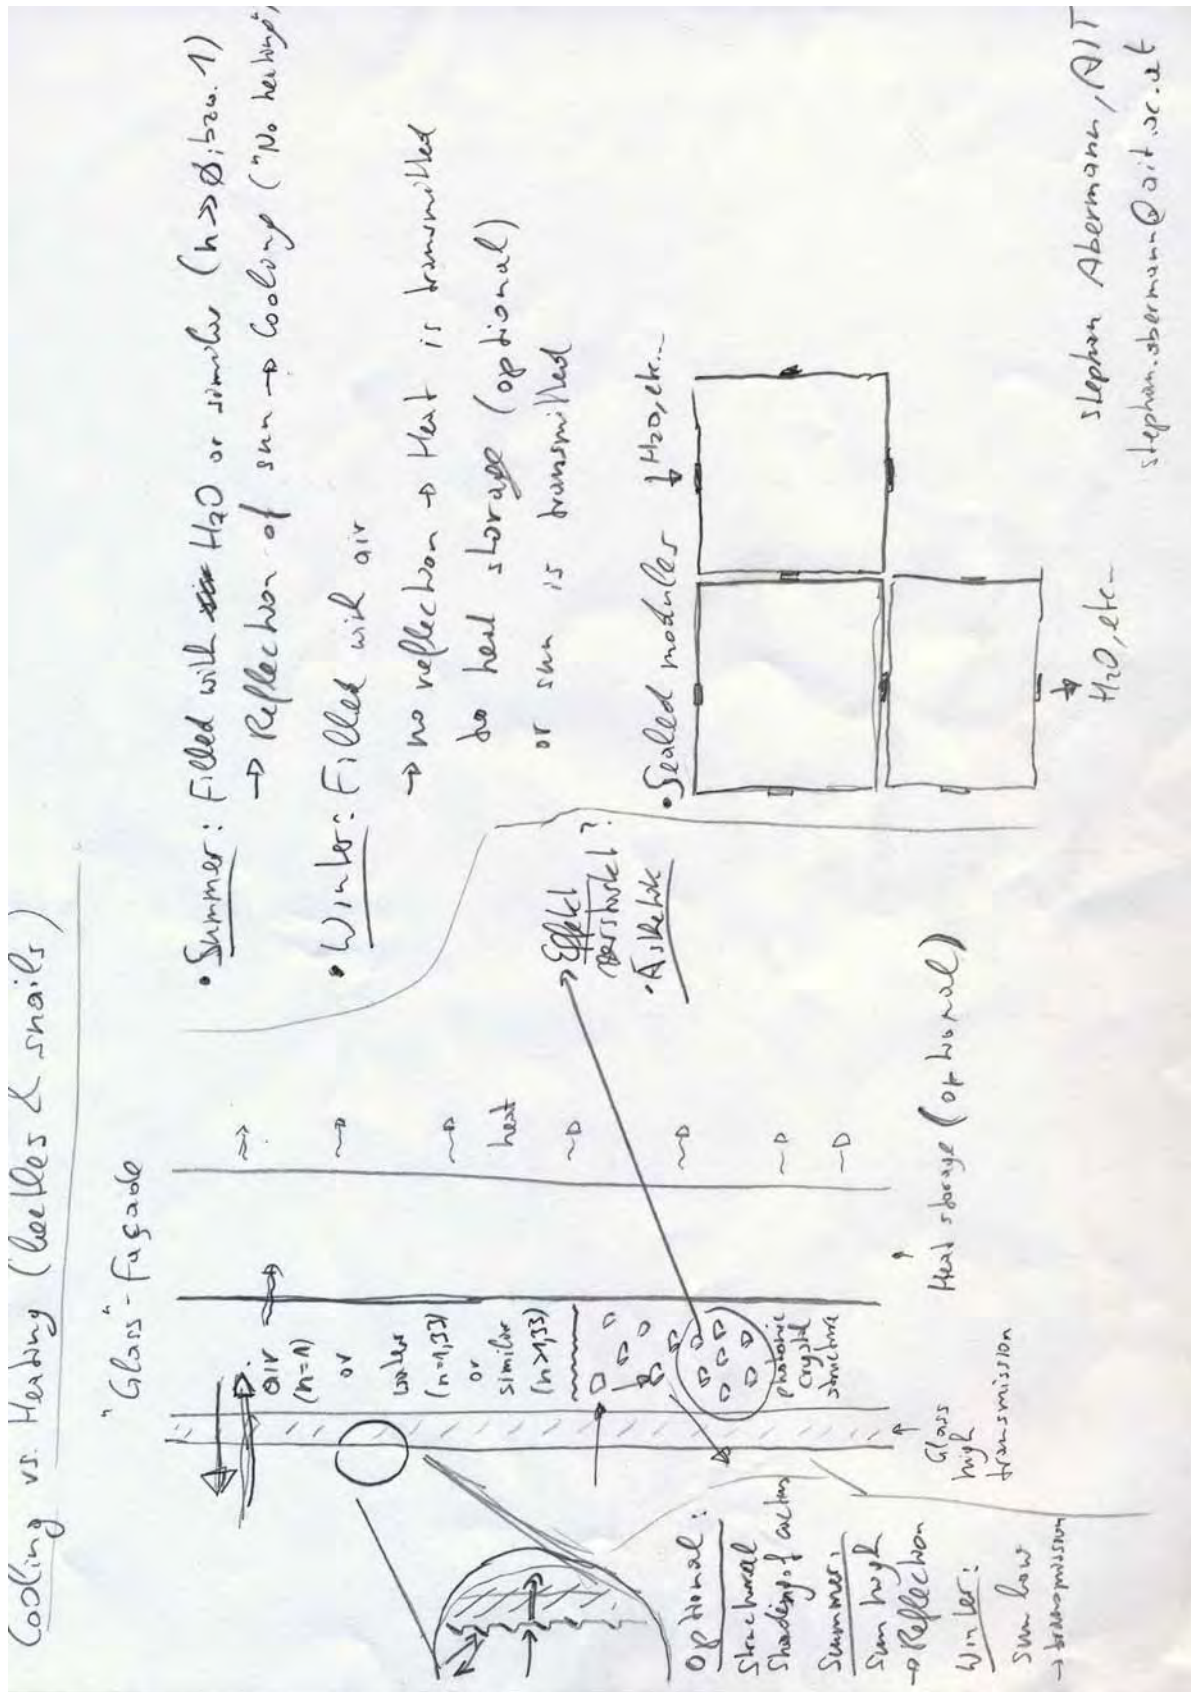 Cooling vs. Heating (beetles & snails)
"Glass"-Façade
air
(n=1)
or
water
(n=1,33)
or
similar
(n>1,33)
photonic
crystal
structure
heat
Glass
high
transmission
Heat storage (optional)
Optional:
Structural
Shading of cactus
Summer:
Sun high
→ Reflection
Winter:
Sun low
→ transmission
• Summer: Filled with H2O or similar (n>>0; bzw. 1)
→ Reflection of sun → Cooling ("No heating")
• Winter: Filled with air
→ no reflection → Heat is transmitted
to heat storage (optional)
or sun is transmitted
Effekt
verstärkt?
• Ästhetik
• Sealed modules
H2O, etc..
H2O, etc..
Stephan Abermann, AIT
stephan.abermann@ait.ac.at